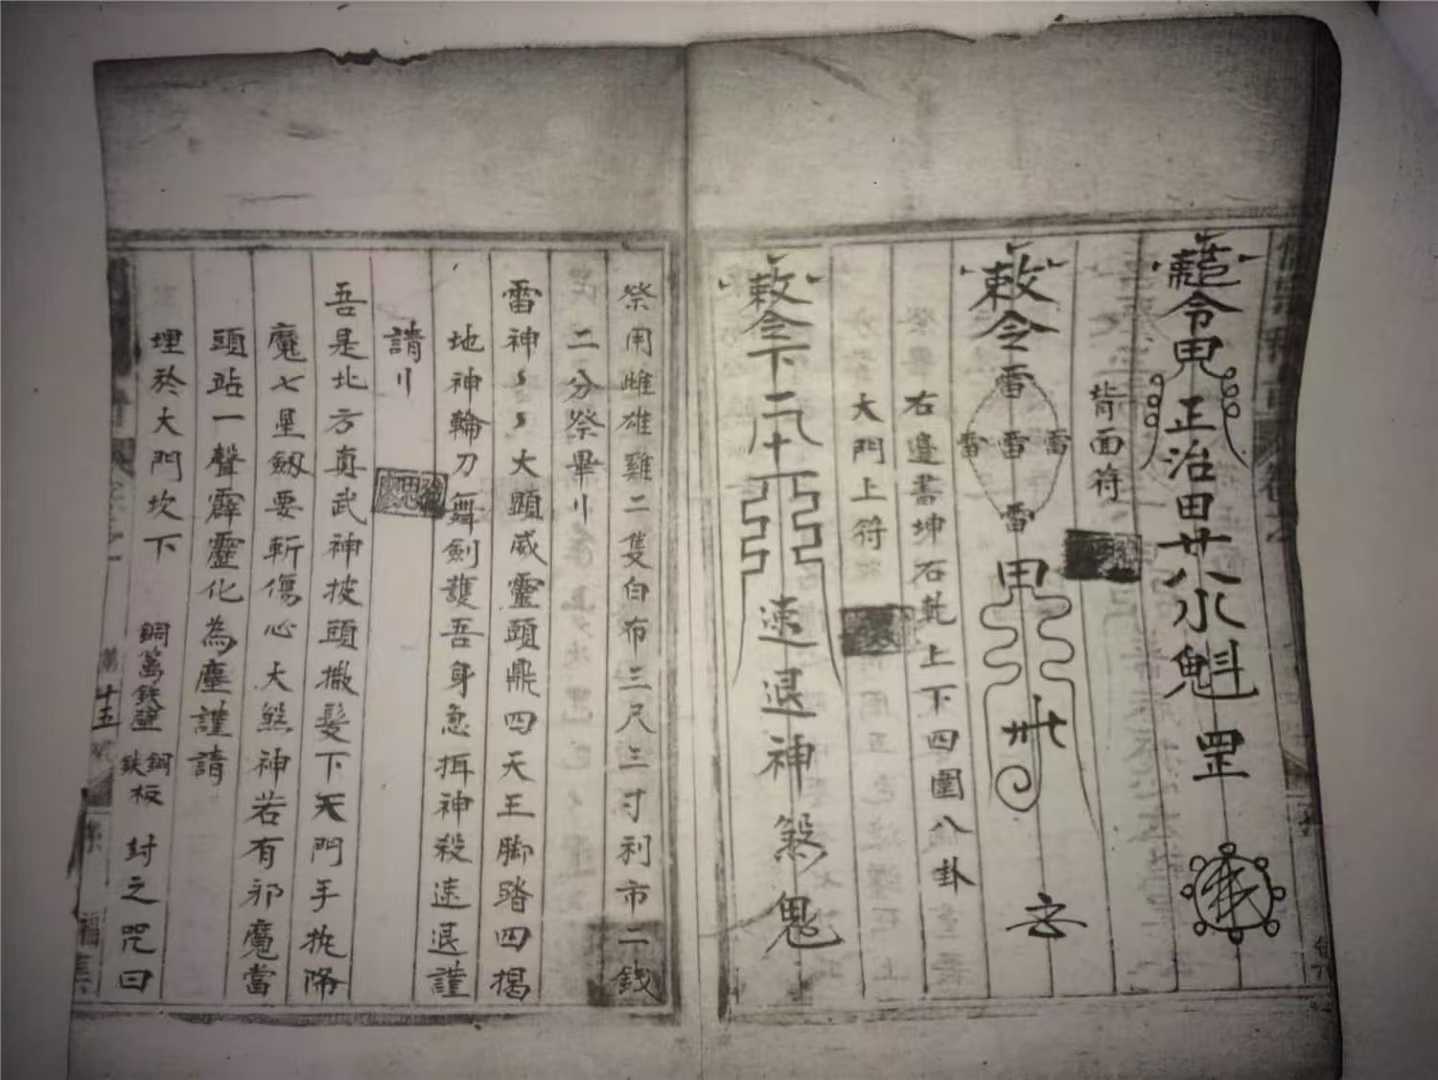 敕令
正治田廿八水魁罡
背面符
敕令
雷
雷雷雷
雷
甲
右邊書坤石乾上下四圍八卦
大門上符
敕令下
速退神煞鬼
祭用雌雄雞二隻白布三尺三寸利市二錢
二分祭畢刂
雷神〻〻大顯威靈頭鼎四天王脚踏四揭
地神輪刀舞劍護吾身急揖神殺速退謹
請刂
吾是北方真武神披頭撒髮下天門手执降
魔七星劔要斬傷心大煞神若有邪魔當
頭站一聲霹靂化為塵謹請
埋於大門坎下
封之咒曰
十五